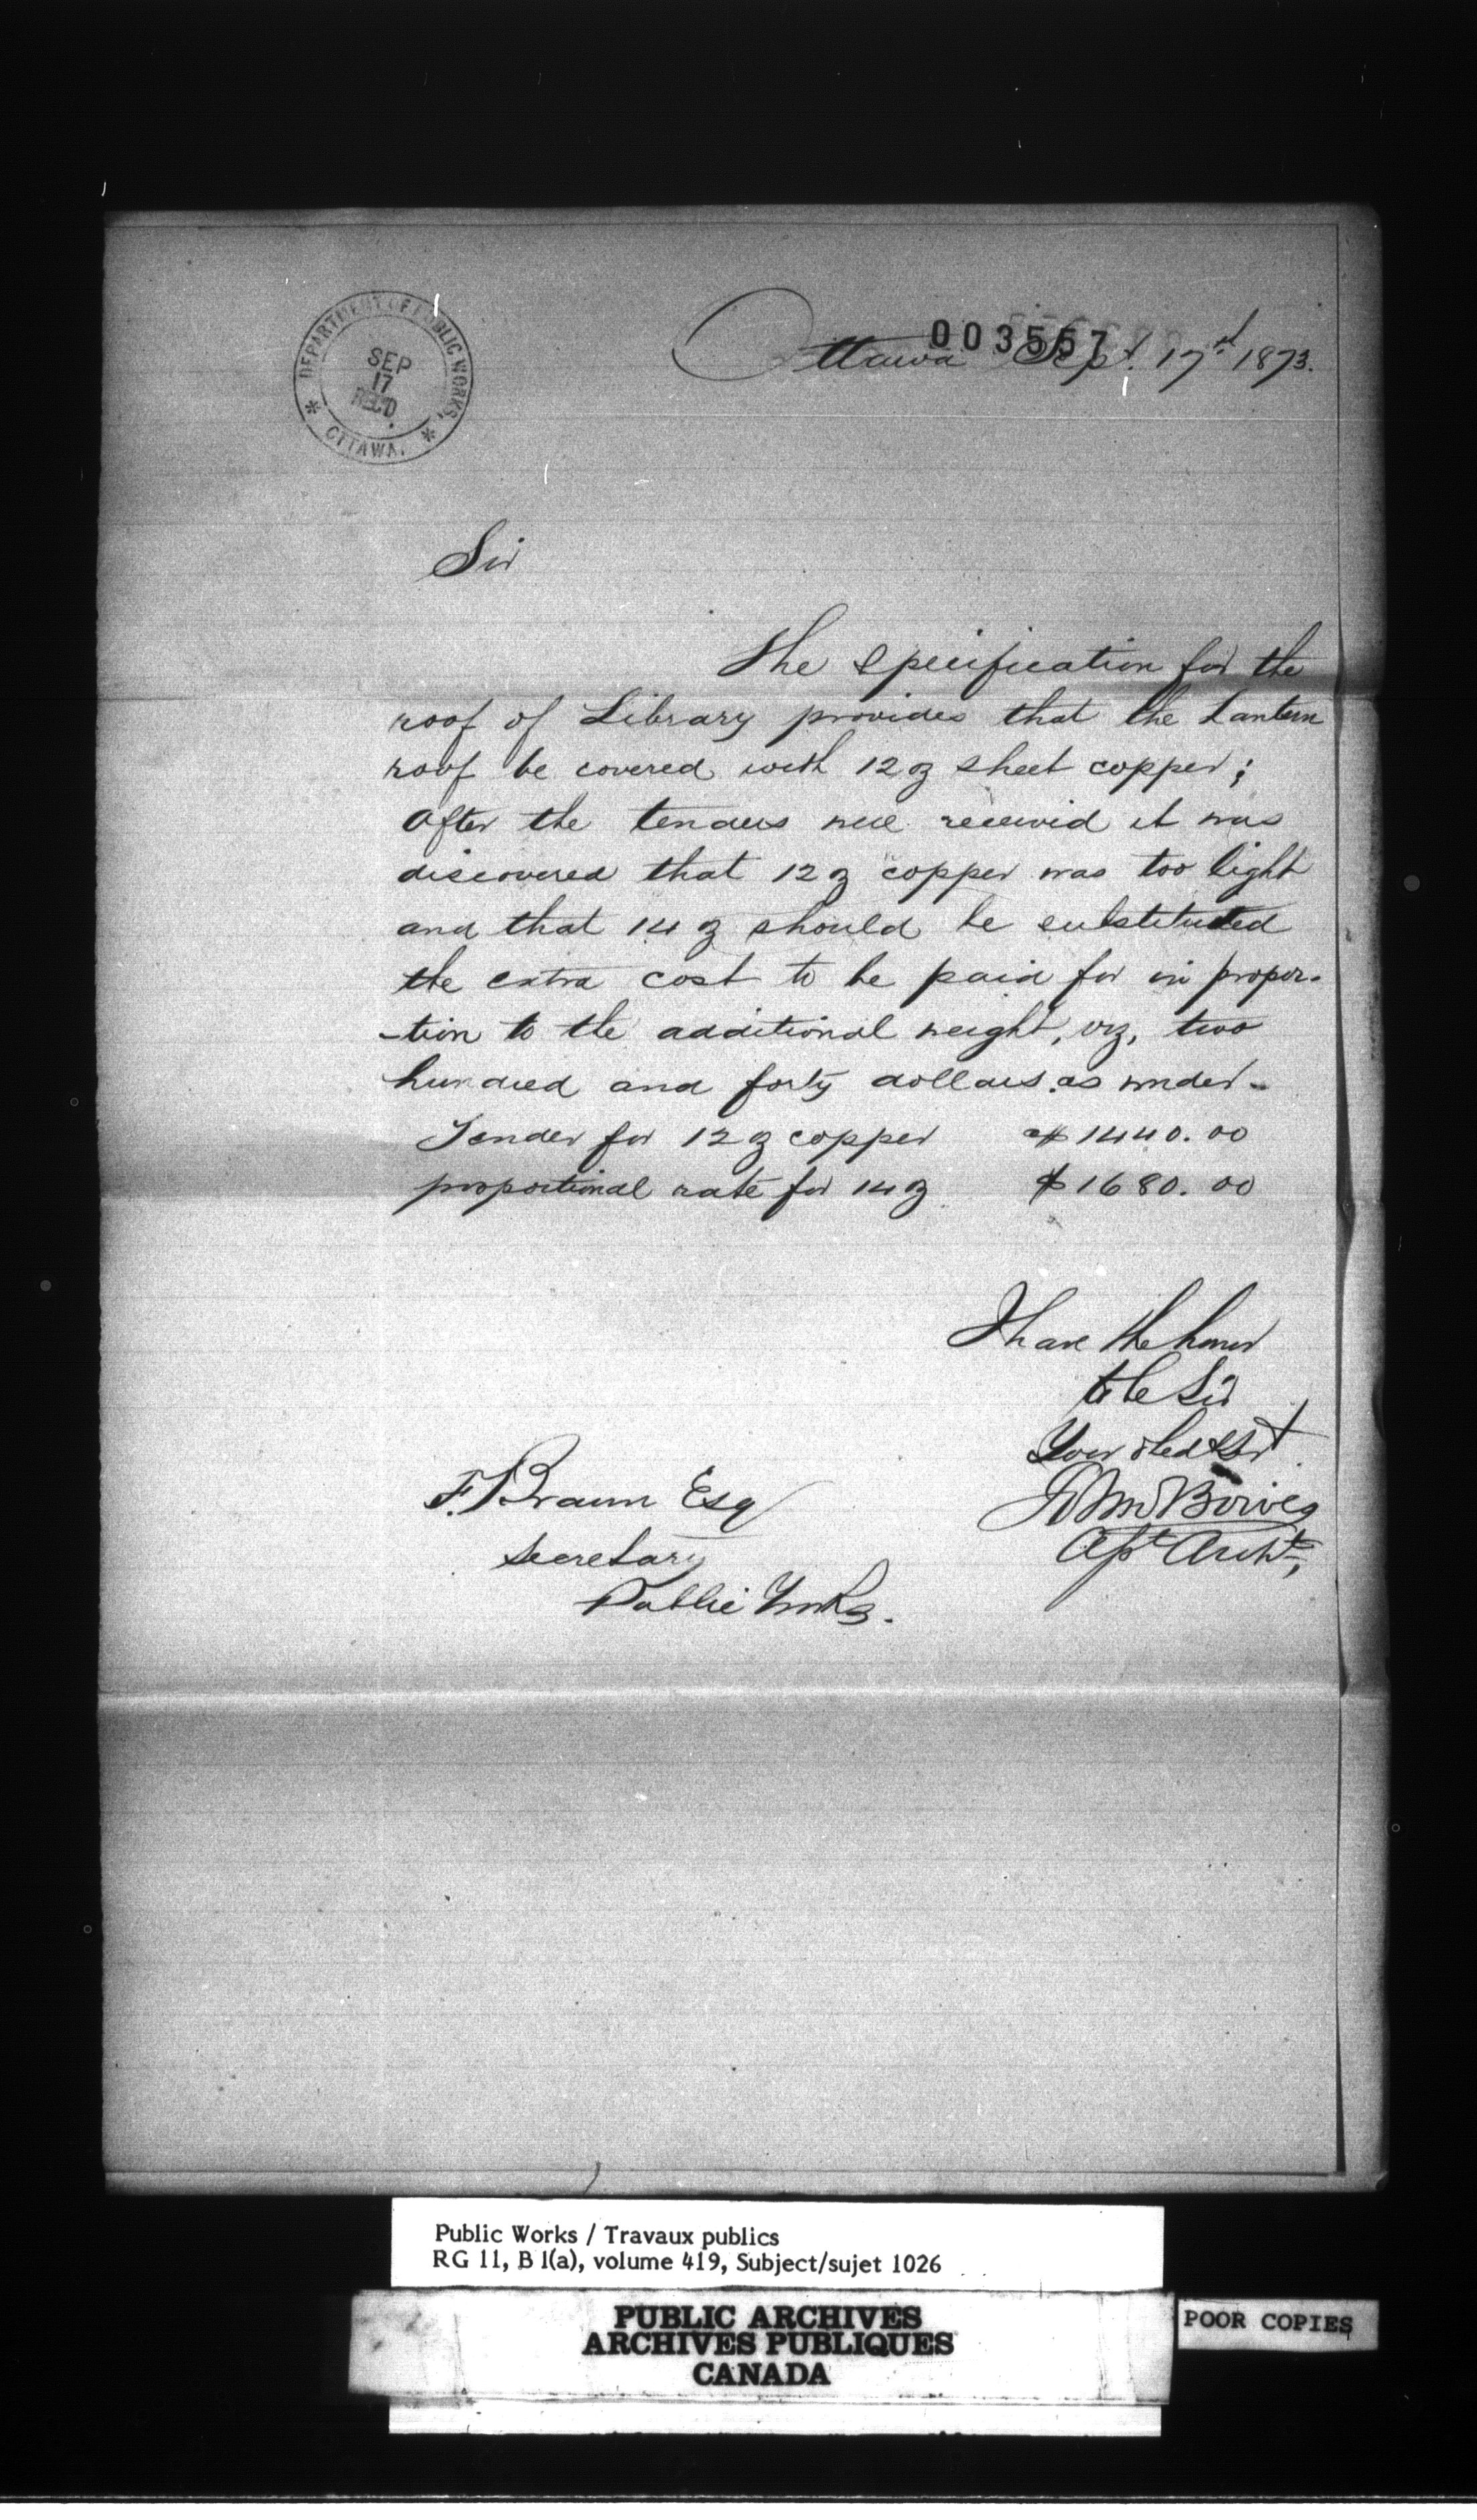 DEPARTMENT OF PUBLIC WORKS,
SEP
17
REC'D
OTTAWA.
003557
Ottawa Sept. 17th 1873.
Sir
The specification for the
roof of Library provides that the Lantern
roof be covered with 12 oz sheet copper;
After the tenders were received it was
discovered that 12 oz copper was too light
and that 14 oz should be substituted
the extra cost to be paid for in propor-
-tion to the additional weight, viz, two
hundred and forty dollars as under -
Tender for 12 oz copper $1440.00
proportional rate for 14 oz $1680.00
I have the honor
to be Sir
Your obedt Svt
John Bowes
Asst Archt,
F. Braun Esq
Secretary
Public Works.
Public Works / Travaux publics
RG 11, B 1(a), volume 419, Subject/sujet 1026
PUBLIC ARCHIVES
ARCHIVES PUBLIQUES
CANADA
POOR COPIES